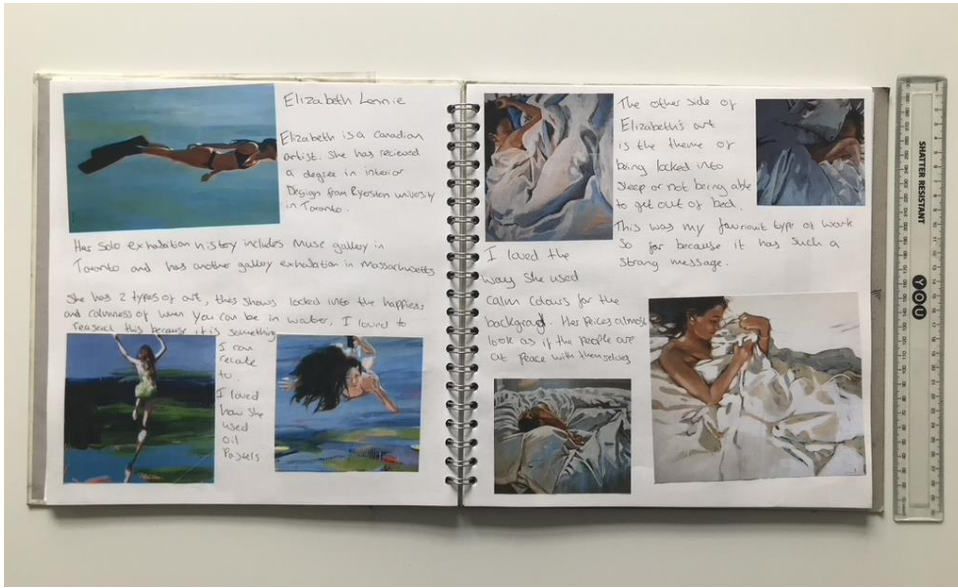 Elizabeth Lennie
Elizabeth is a canadian
artist. She has recieved
a degree in interior
Design from Ryerston univesity
in Toronto.
Her Solo exhabation history includes Muse gallery in
Toronto and has another gallery exhabation in Massachusetts
She has 2 types of art, thes shows locked into the happiess
and calmness of when you can be in water, I loved to
reaseach this because it is something
I can
relate
to.
I loved
how she
used
oil
Pastels
The other side of
Elizabeth's art
is the theme of
being locked into
sleep or not being able
to get out of bed.
This was my favriouit type of work
So far because it has such a
strong message.
I loved the
way she used
calm colours for the
backgrand. Her Peices almost
look as if the people are
at peace with themselves
SHATTER RESISTANT
YOU